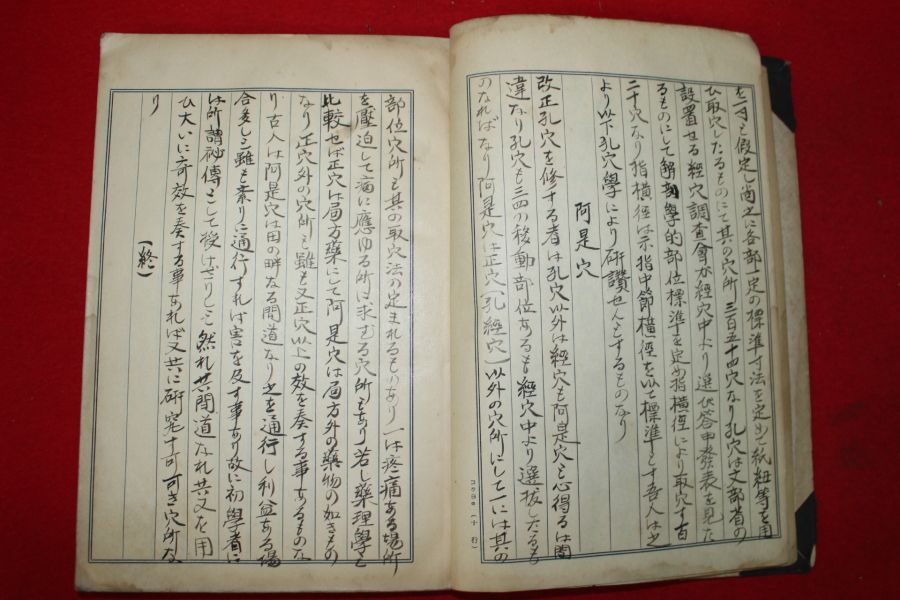 を一寸と假定し尚之に各部一定の標準寸法を定めて紙紐等を用
ひ取穴したるものにて其の穴所三百五十四穴なり孔穴は文部省の
設置せる經穴調査會が經穴中より選び答申發表を見た
るものにして解剖學的部位標準を定め指横徑により取穴す百
二十穴なり指横徑は示指中節横徑を以て標準とす吾人は之
より以下孔穴學により研讃せんとするものなり
阿是穴
改正孔穴を修する者は孔穴以外は經穴も阿是穴と心得るは間
違なり孔穴も三四の移動部位あるも經穴中より選拔したるも
のなればなり阿是穴は正穴(孔經穴)以外の穴所にして一には其の
部位穴所も其の取穴法の定まれるものあり一は疼痛ある場所
を壓迫して痛に應ゆる所に求むる穴所もあり若し藥理學と
比較せば正穴は局方藥にして阿是穴は局方外の藥物の如きもの
なり正穴外の穴所と雖も又正穴以上の效を奏する事あるものな
り古人は阿是穴は田の畔なる間道なり之を通行し利益ある場
合多しと雖も素りに通行すれば害を及す事あり故に初學者に
は所謂祕傳として授けざりしと然れ共間道なれ共又を用
ひ大いに奇效を奏する事あれば又共に研究す可き穴所な
り
(終)
コクヨ
(十行)